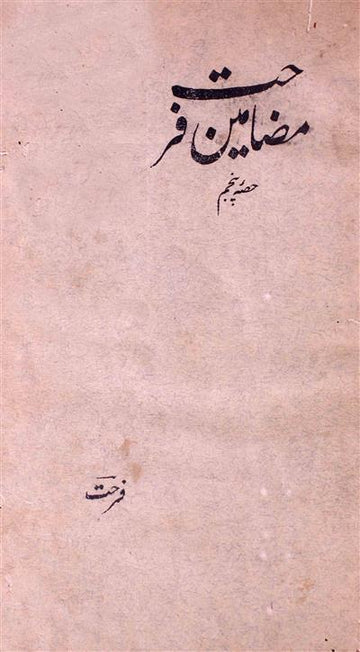 مضامین فرحت
حصہ پنجم
فرحت